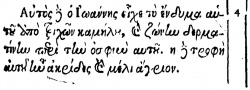 Αὐτὸς ἢ ὁ Ἰωάννης εἶχε τὸ ἔνδυμα αὑ- 4
τοῦ ἀπὸ τριχῶν καμήλου, καὶ ζώνην δερμα-
τίνην περὶ τὴν ὀσφιῶ αὑτοῦ. ἡ ἢ τροφὴ
αὐτοῦ ἦν ἀκρίδες καὶ μέλι ἄγριον.